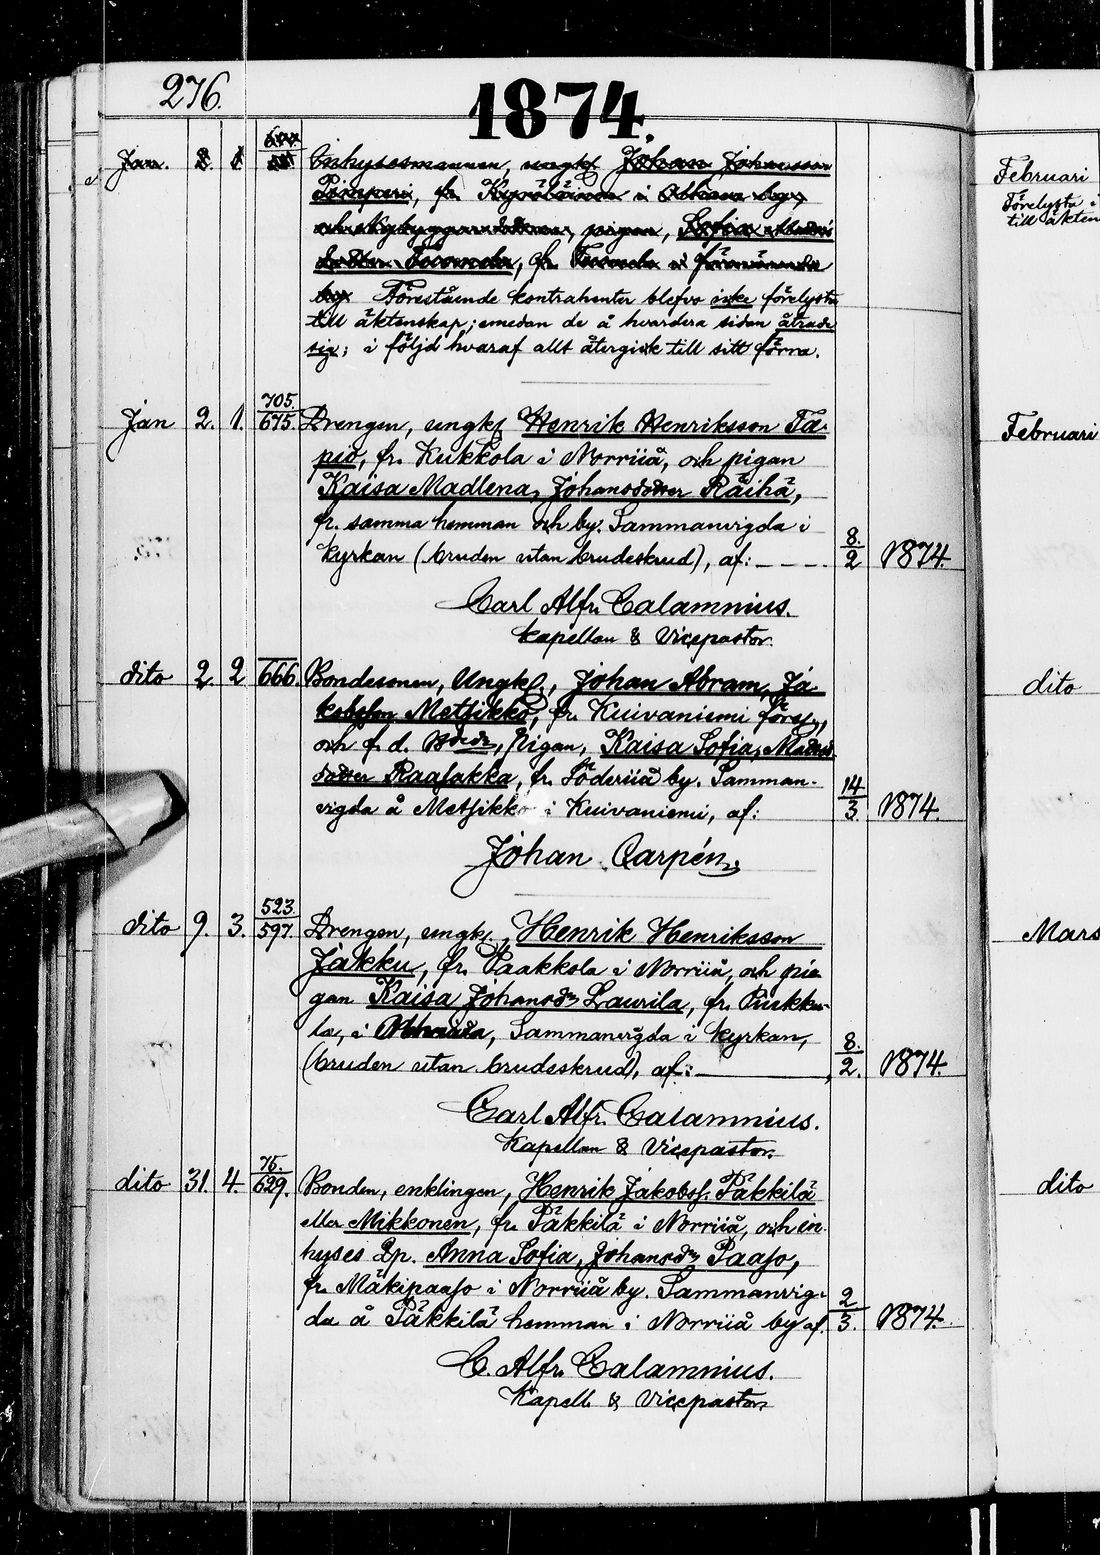 276.
1874.
Jan. 2. 1 Inhysesmannen, ungk. Johan Johansson
fr. i by
pigan, Sofia
fr.
by Förestående kontrahenter blefvo icke förelysta
till äktenskap; emedan de å hvardera sidan åtrade
sig; i följd hvaraf allt återgick till sitt förra.
705.
Jan 2. 1. 675. Drengen, ungk. Henrik Henriksson Ta-
pio, fr. Kukkola i Norriiå, och pigan
Kaisa Madlena, Johansdotter Räihä,
fr. samma hemman och by. Sammanvigda i
kyrkan (bruden utan brudeskrud), af: 8./2 1874.
Carl Alfr. Calamnius.
Kapellan & Vicepastor.
dito 2. 2 666. Bondesonen, Ungk., Johan Abram, Ja-
kobsson Metsikkö, fr. Kuivaniemi förs.,
och f. d. Pigan, Kaisa Sofia, Madsd
dotter Raasakka, fr. Söderiiå by. Samman-
vigda å Metsikkö i Kuivaniemi, af: 14/3. 1874.
Johan Carpén.
523.
dito 9. 3. 597. Drengen, ungk., Henrik Henriksson
Jakku, fr. Paakkola i Norriiå, och pi-
gan Kaisa Johansdr Laurila, fr.
la, i Sammanvigda i kyrkan,
(bruden utan brudeskrud), af: 8./2. 1874.
Carl Alfr. Calamnius.
Kapellan & Vicepastor.
75.
dito 31. 4. 629. Bonden, enklingen, Henrik Jakobsf. Päkkilä
eller Mikkonen, fr. Päkkilä i Norriiå, och in-
hyses Qp. Anna Sofia, Johansdr Paaso,
fr. Mäkipaaso i Norriiå by. Sammanvig-
da å Päkkilä hemman i Norriiå by af. 2/3. 1874.
C. Alfr. Calamnius.
Kapell. & Vicepastor.
Februari
Förelysta i
till äkten
Februari
dito
Mars
dito